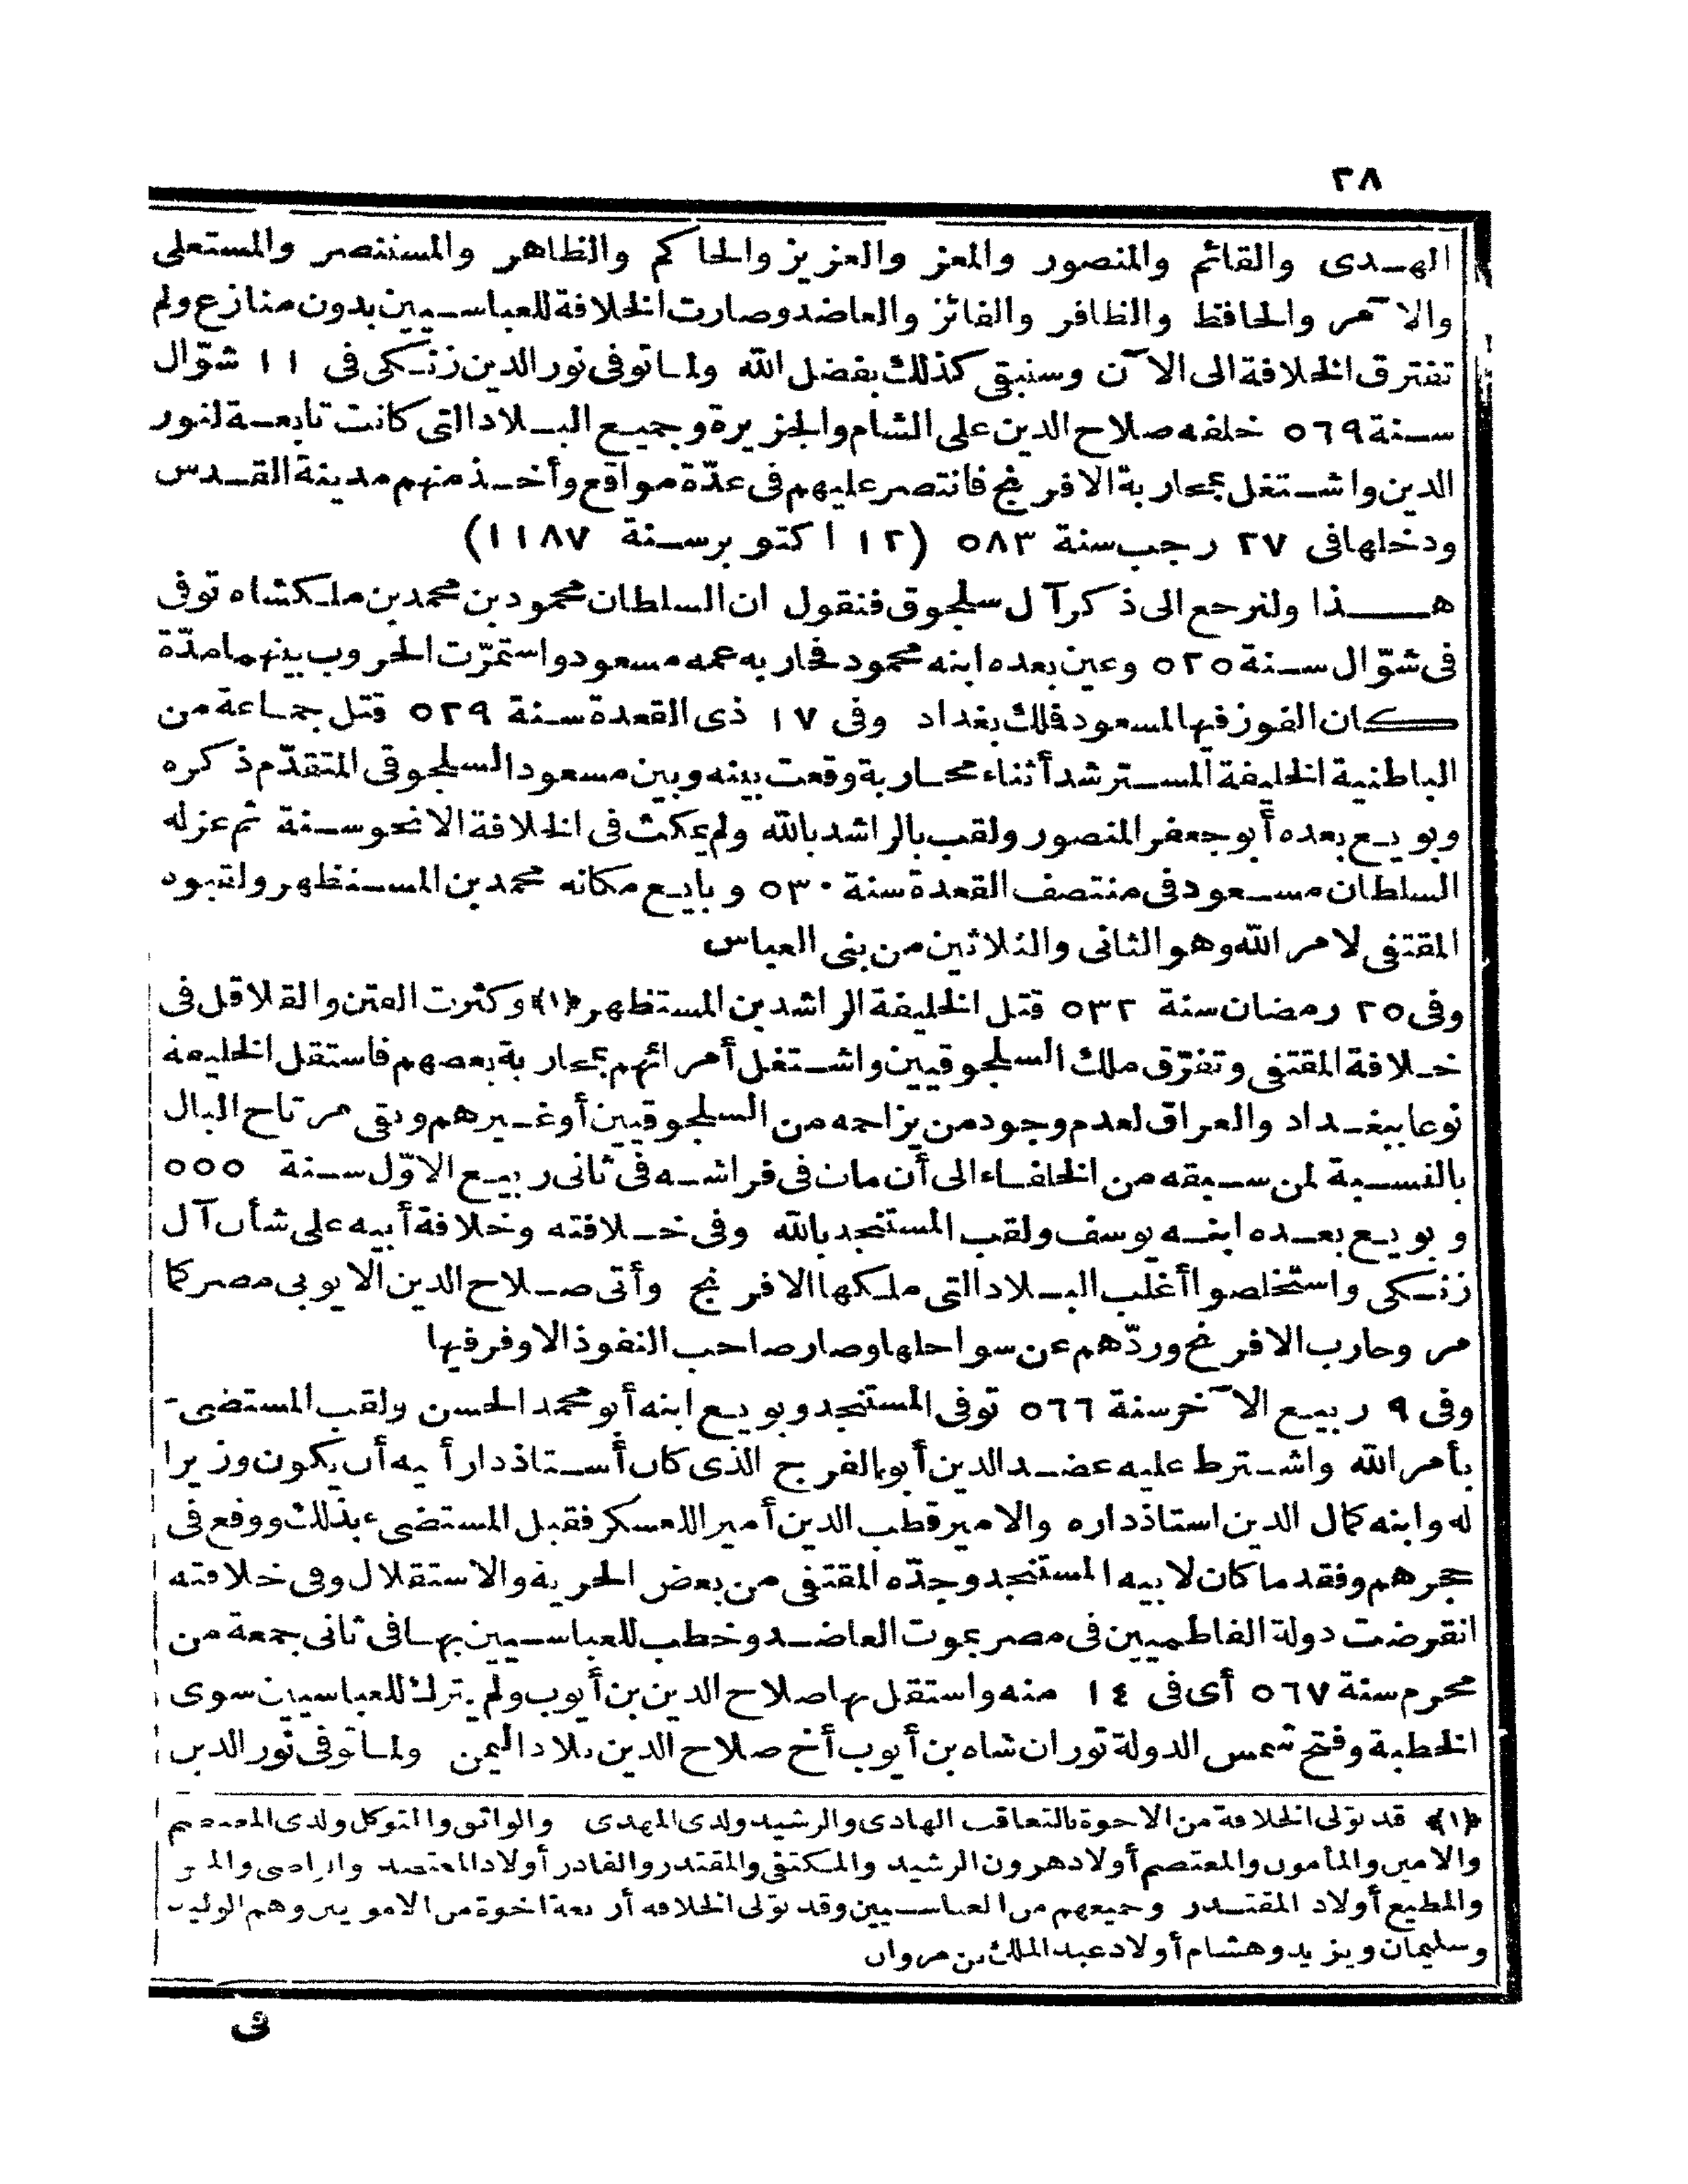 ٢٨
الهدى والقائم والمنصور والمعز والعزيز والحاكم والظاهر والمستنصر والمستعلى
والآمر والحافظ والظافر والفائز والعاضد وصارت الخلافة للعباسيين بدون منازع ولم
تفترق الخلافة الى الآن وستبقى كذلك بفضل الله ولما توفى نور الدين زنكى فى ١١ شوّال
سنة ٥٦٩ خلفه صلاح الدين على الشام والجزيرة وجميع البلاد التى كانت تابعة لنور
الدين واشتغل بمحاربة الافرنج فانتصر عليهم فى عدّة مواقع وأخذ منهم مدينة القدس
ودخلها فى ٢٧ رجب سنة ٥٨٣ (١٢ اكتوبر سنة ١١٨٧)
هذا ولنرجع الى ذكر آل سلجوق فنقول ان السلطان محمود بن محمد بن ملكشاه توفى
فى شوّال سنة ٥٢٥ وعين بعده ابنه محمود فحاربه عمه مسعود واستمرّت الحروب بينهما مدّة
كان الفوز فيها لمسعود فملك بغداد وفى ١٧ ذى القعدة سنة ٥٢٩ قتل جماعة من
الباطنية الخليفة المسترشد أثناء محاربة وقعت بينه وبين مسعود السلجوقى المتقدّم ذكره
وبويع بعده أبو جعفر المنصور ولقب بالراشد بالله ولم يمكث فى الخلافة الا نحو سنة ثم عزله
السلطان مسعود فى منتصف القعدة سنة ٥٣٠ وبايع مكانه محمد بن المستظهر ولقبوه
المقتفى لامر الله وهو الثانى والثلاثين من بنى العباس
وفى ٢٥ رمضان سنة ٥٣٢ قتل الخليفة الراشد بن المستظهر ﴿١﴾ وكثرت الفتن والقلاقل فى
خلافة المقتفى وتفرّق ملك السلجوقيين واشتغل أمرائهم بمحاربة بعضهم فاستقل الخليفة
نوعا ببغداد والعراق لعدم وجود من يزاحمه من السلجوقيين أو غيرهم وبقى مرتاح البال
بالنسبة لمن سبقه من الخلفاء الى أن مات فى فراشه فى ثانى ربيع الاوّل سنة ٥٥٥
وبويع بعده ابنه يوسف ولقب المستنجد بالله وفى خلافته وخلافة أبيه على شأن آل
زنكى واستخلصوا أغلب البلاد التى ملكها الافرنج وأتى صلاح الدين الايوبى مصر كما
مر وحارب الافرنج وردّهم عن سواحلها وصار صاحب النفوذ الاوفر فيها
وفى ٩ ربيع الآخر سنة ٥٦٦ توفى المستنجد وبويع ابنه أبو محمد الحسن ولقب المستضى-
بأمر الله واشترط عليه عضد الدين أبو الفرج الذى كان أستاذ دار أبيه أن يكون وزيرا
له وابنه كمال الدين استاذ داره والامير قطب الدين أمير اللعسكر فقبل المستضىء بذلك ووقع فى
حجرهم وفقد ما كان لابيه المستنجد وجدّه المقتفى من بعض الحرية والاستقلال وفى خلافته
انقرضت دولة الفاطميين فى مصر بموت العاضد وخطب للعباسيين بها فى ثانى جمعة من
محرم سنة ٥٦٧ أى فى ١٤ منه واستقل بها صلاح الدين بن أيوب ولم يترك للعباسيين سوى
الخطبة وفتح شمس الدولة توران شاه بن أيوب أخ صلاح الدين بلاد اليمن ولما توفى نور الدين
﴿١﴾ قد تولى الخلافة من الاخوة بالتعاقب الهادى والرشيد ولدى المهدى والواثق والمتوكل ولدى المعتصم
والامين والمأمون والمعتصم أولاد هرون الرشيد والمكتفى والمقتدر والقادر أولاد المعتضد والراضى
والمطيع أولاد المقتدر وجميعهم من العباسيين وقد تولى الخلافة أربعة اخوة من الامويين وهم الوليد
وسليمان ويزيد وهشام أولاد عبد الملك بن مروان
فى